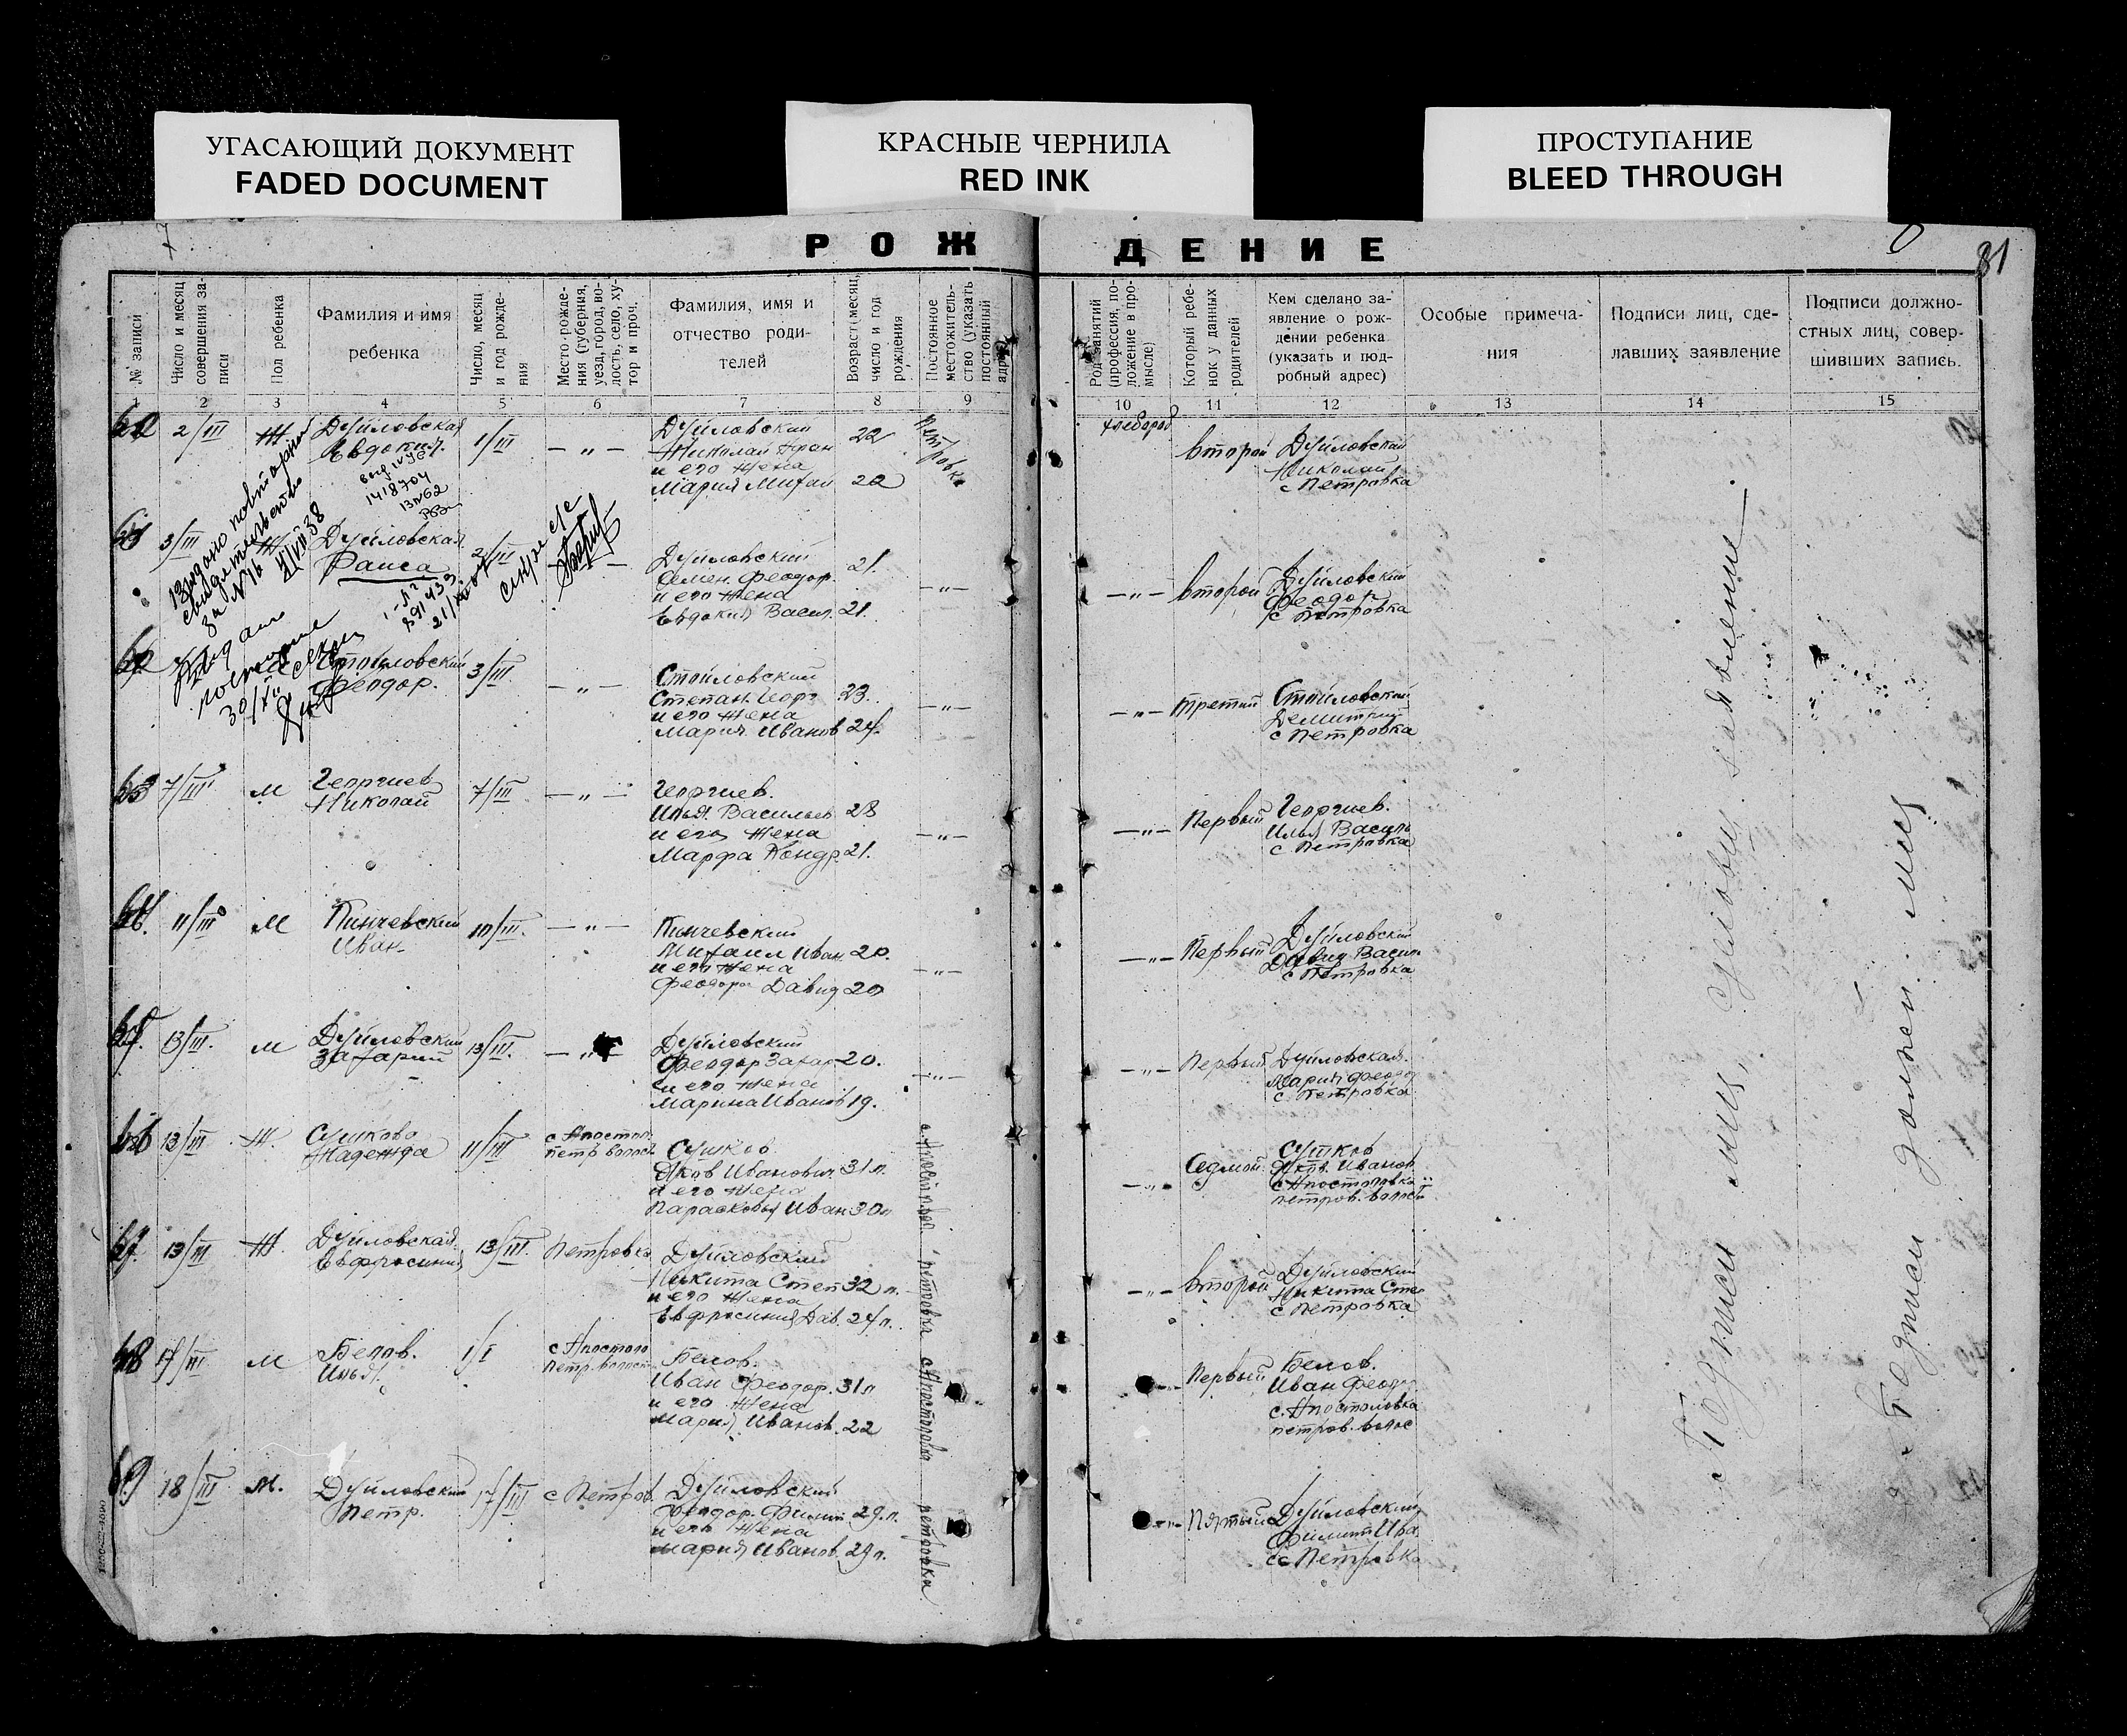 УГАСАЮЩИЙ ДОКУМЕНТ
FADED DOCUMENT
КРАСНЫЕ ЧЕРНИЛА
RED INK
ПРОСТУПАНИЕ
BLEED THROUGH
РОЖДЕНИЕ
81
№ записи
Число и месяц
совершения за-
писи
Пол ребенка
Фамилия и имя
ребенка
Число, месяц
и год рожде-
ния
Место рожде-
ния (губерния,
уезд, город, во-
лость, село, ху-
тор и проч.
Фамилия, имя и
отчество роди-
телей
Возраст: месяц,
число и год
рождения
Постоянное
местожитель-
ство (указать
постоянный
адрес)
Род занятий
(профессия, по-
ложение в про-
мысле)
Который ребе-
нок у данных
родителей
Кем сделано за-
явление о рож-
дении ребенка
(указать и под-
робный адрес)
Особые примеча-
ния
Подписи лиц, сде-
лавших заявление
Подписи должно-
стных лиц, совер-
шивших запись.
1 2 3 4 5 6 7 8 9 10 11 12 13 14 15
2/III Ж
Дуйловская
Евдокия
1/III
— „ —
Дуйловский
Николай
и его жена
Мария Михаи
22
22
Петровка
хлебороб
второй
Дуйловский
Николай
с Петровка
1418704
Выдано повторное
свидетельство
за №16
3/III Ж
Дуйловская
Раиса
2/III
Дуйловский
Семен. Феодор.
и его жена
Евдокия Васил.
21.
21.
— „ —
— „ —
второй
Дуйловский
Феодор
с Петровка
Стойловский
Феодор.
3/III
— „ —
Стойловский
Степан. Георг
и его жена
Мария Иванов
23.
24.
— „ —
— „ —
третий
Стойловский
Демитрий
с Петровка
63 7/III м
Георгиев
Николай
7/III
— „ —
Георгиев.
Илья Васильев
и его жена
Марфа Кондр.
28
21.
— „ —
— „ —
Первый
Георгиев.
Илья Василь
с. Петровка
64. 11/III м
Пинчевский
Иван
10/III.
— „ —
Пинчевский
Михаил Иван
и его жена
Феодора Давид
20.
20
— „ —
— „ —
Первый
Дуйловский
Давид Васил.
с Петровка
65. 13/III. м
Дуйловский
Захарий
13/III.
— „ —
Дуйловский
Феодор Захар
и его жена
Марина Иванов
20.
19.
— „ —
— „ —
Первый
Дуйловская
Мария Феодор
с. Петровка
66 13/III Ж.
Сушкова
Надежда
11/III
с Апостол.
петр волост
Сушков
Яков Иванович
и его жена
Парасковья Иван
31 л.
30 л
— „ —
Седмой
Сушков
Яков. Иванов
с Апостоловка
петров. волост
67. 13/III Ж.
Дуйловская
Евфросиния
13/III.
Петровка
Дуйловский
Никита Степ
и его жена
Евфросиния Дав.
32 л.
24 л.
петровка
— „ —
второй
Дуйловский
Никита Сте
с Петровка
68 17/III м
Белов.
Илья.
1/I
с Апостоло
Петр. волост
Белов.
Иван Феодор.
и его жена
Мария Иванов.
31 л
22
с Апостоловка
Первый
Белов.
Иван Феодор
с. Апостоловка
петров. волос
69 18/III м.
Дуйловский
Петр.
17/III
с Петров.
Дуйловский
Феодор. Филип
и его жена
Мария Иванов.
29. л.
29 л.
петровка
Пятый
Дуйловский
Филип
с Петровка
Подписи лиц, сделовш. заявление
Подписи должен. лиц